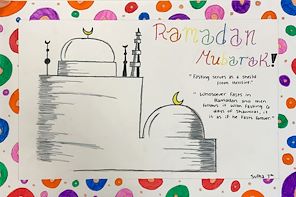 Ramadan
Mubarak!
"Fasting serves as a shield
from Hellfire."
"Whosoever fasts in
Ramadan and then
follows it with fasting 6
days of Shawwal, it
is as if he fasts forever."